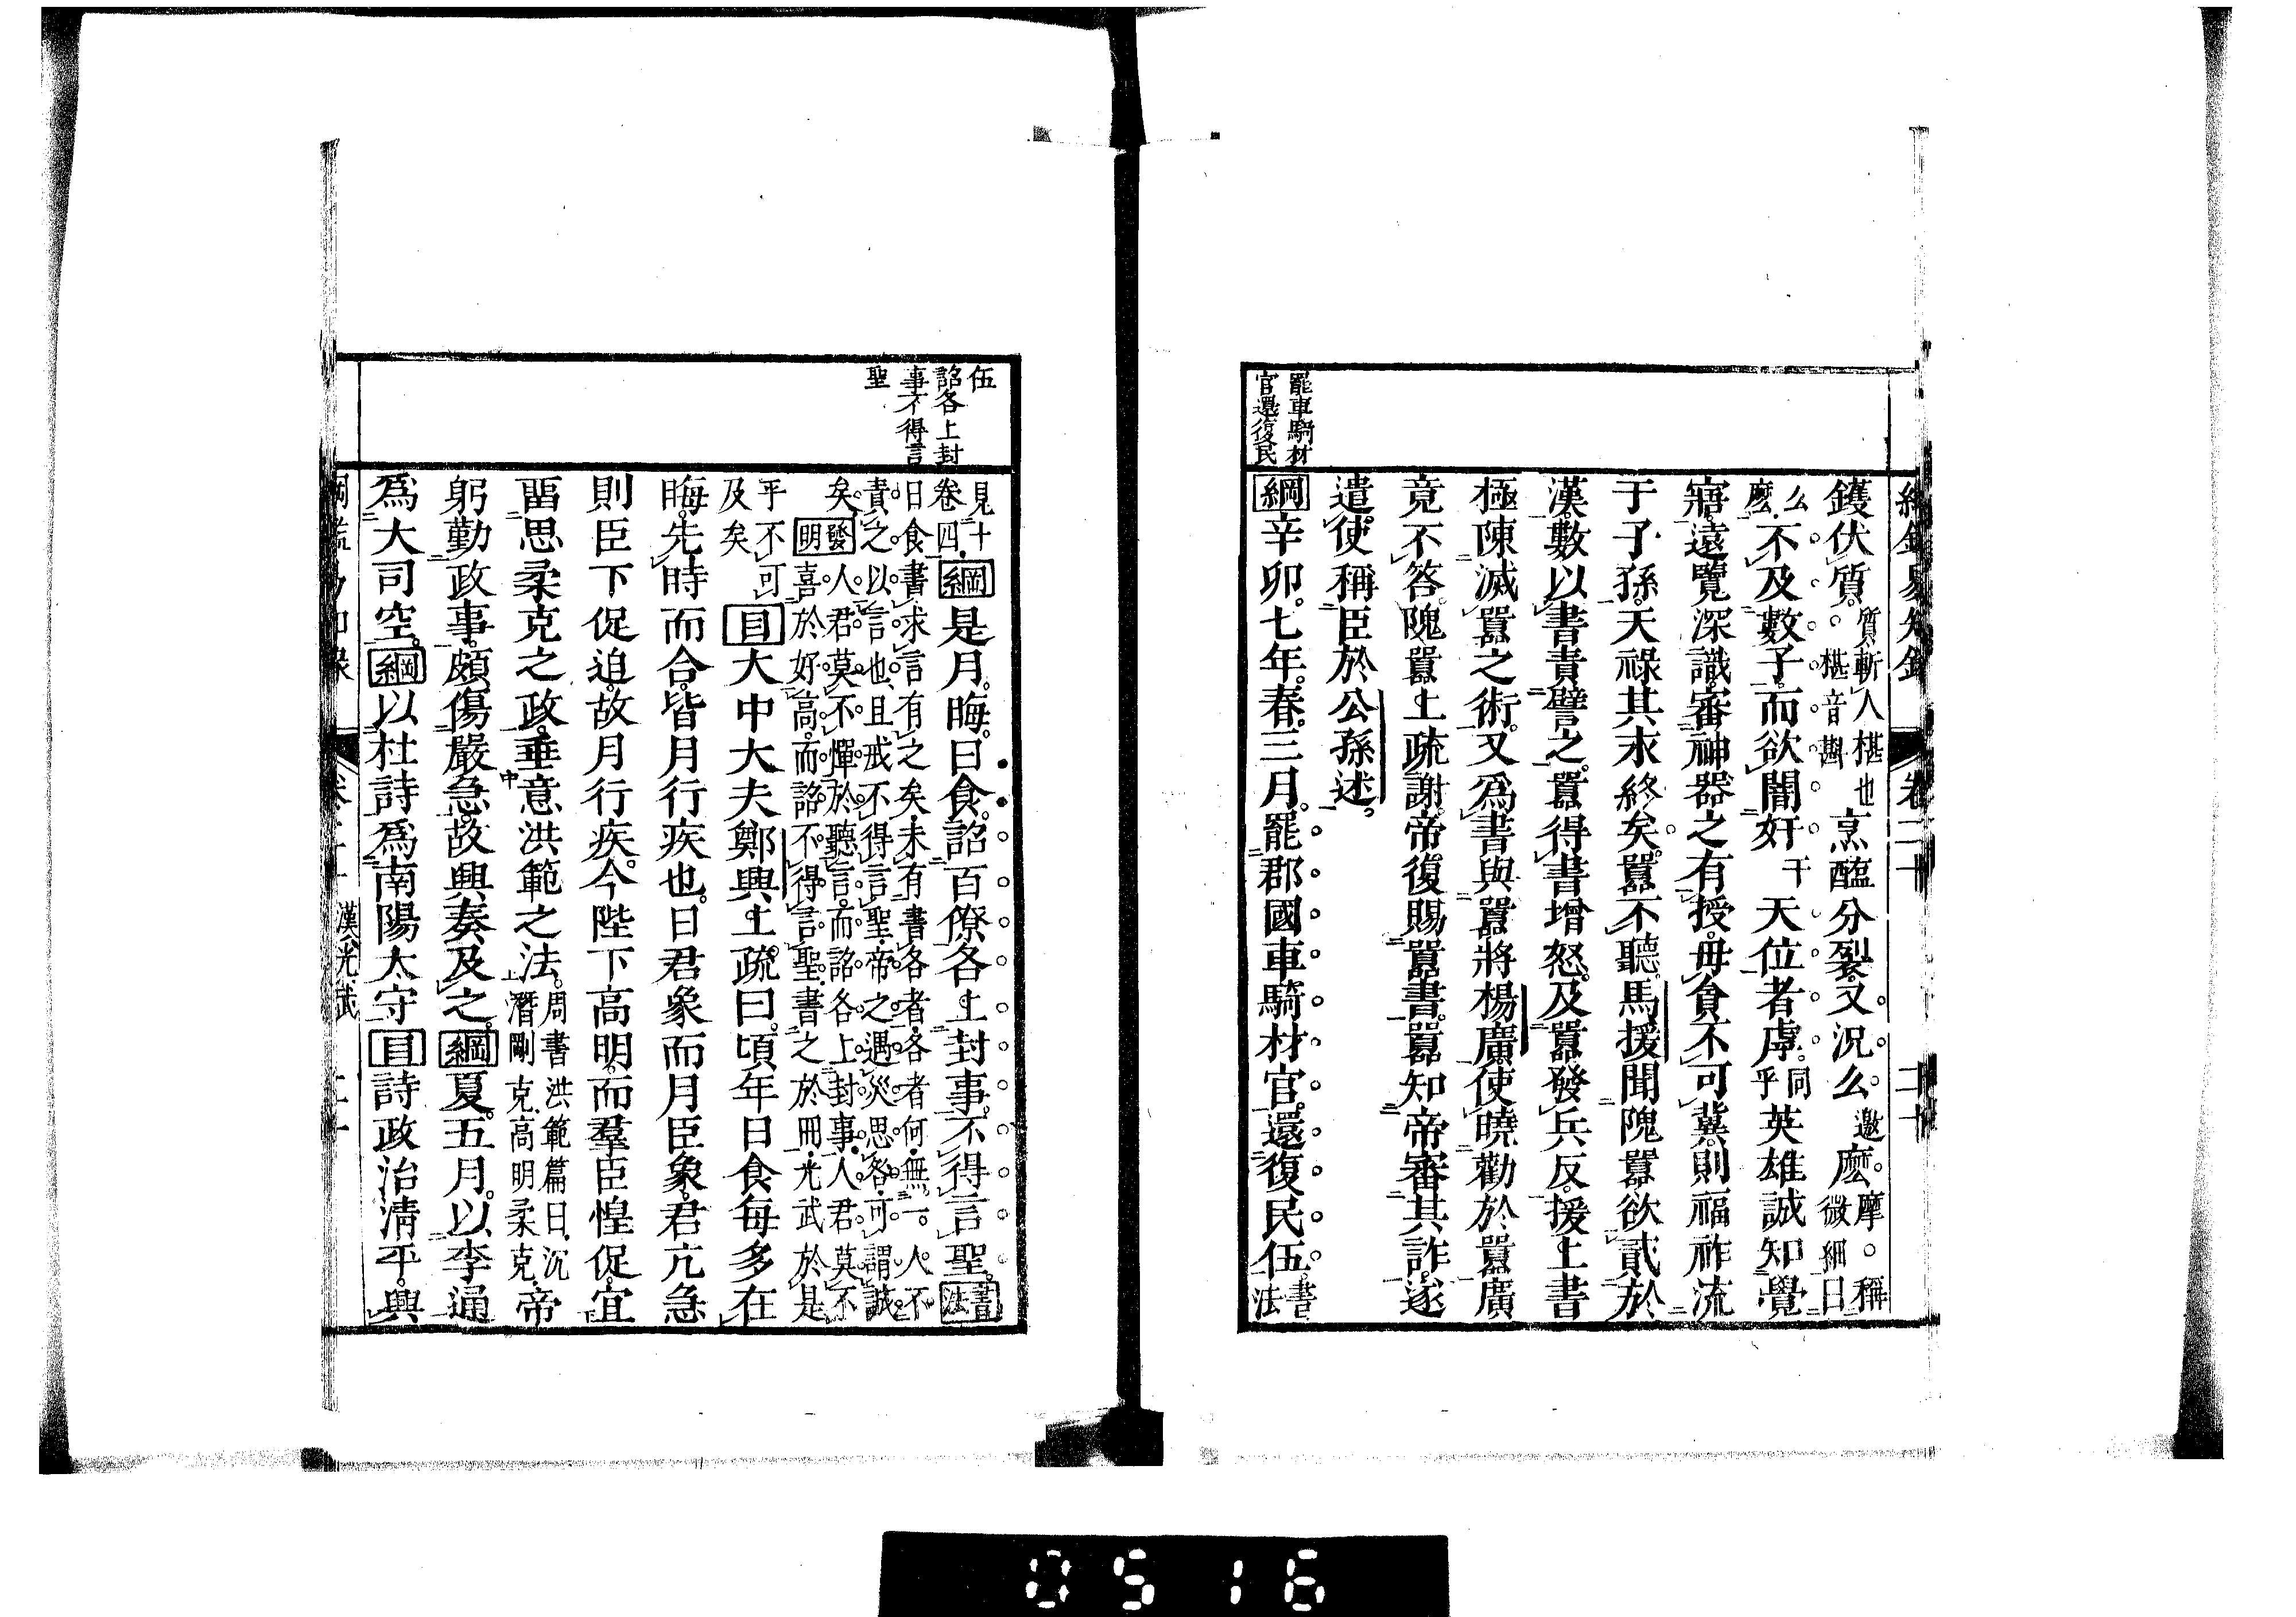 罷車騎材
官還復民
鑊伏質。質斬人椹也椹音斟烹醢分裂。又況么邀麼。摩。微細稱曰
么麼不及數子。而欲闇奸干天位者虖。同乎英雄誠知覺
寤。遠覽深識。審神器之有授。毋貪不可冀。則福祚流
于子孫。天祿其永終矣。囂不聽。馬援聞隗囂欲貳於
漢。數以書責譬之。囂得書增怒。及囂發兵反。援上書
極陳滅囂之術。又爲書與囂將楊廣。使曉勸於囂。廣
竟不答。隗囂上疏謝。帝復賜囂書。囂知帝審其詐。遂
遣使稱臣於公孫述。
綱辛卯。七年。春。三月。罷郡國車騎材官。還復民伍。書法
伍
詔各上封
事不得言
聖
見十卷四綱是月。晦。日食。詔百僚各上封事。不得言聖。書法
日食書求言有之矣。未有書各者。各者何。無一人不
責之以言也、且戒不得言聖。帝之遇災思咎。可謂誠
矣。發明人君莫不憚於聽言。而詔各上封事。人君莫不
喜於好高。而諦不得言聖。書之於冊。光武於是
乎不可及矣目大中大夫鄭興上疏曰。頃年日食每多在
晦。先時而合。皆月行疾也。日君象而月臣象。君亢急
則臣下促迫。故月行疾。今陛下高明。而羣臣惶促。宜
畱思柔克之政。垂意洪範之法。周書洪範篇曰、沉潛剛克、高明柔克、帝
躬勤政事。頗傷嚴急。故興奏及之。綱夏。五月。以李通
爲大司空。綱以杜詩爲南陽太守目詩政治清平。興
漢光武
0516